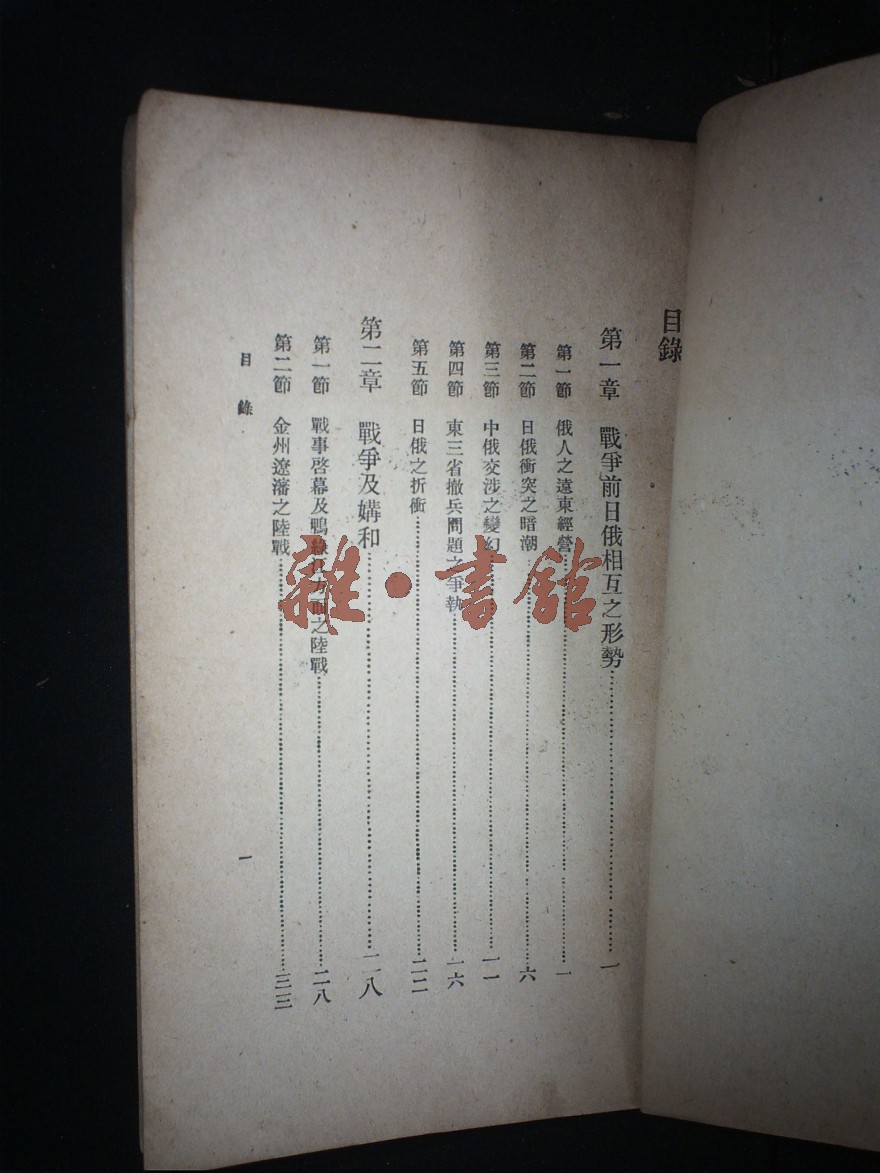 目錄
第一章 戰爭前日俄相互之形勢……一
第一節 俄人之遠東經營……一
第二節 日俄衝突之暗潮……六
第三節 中俄交涉之變幻……一一
第四節 東三省撤兵問題之爭執……一六
第五節 日俄之折衝……二二
第二章 戰爭及媾和……二八
第一節 戰事啓幕及鴨綠江方面之陸戰……二八
第二節 金州遼瀋之陸戰……三三
目錄
一
雜·書館